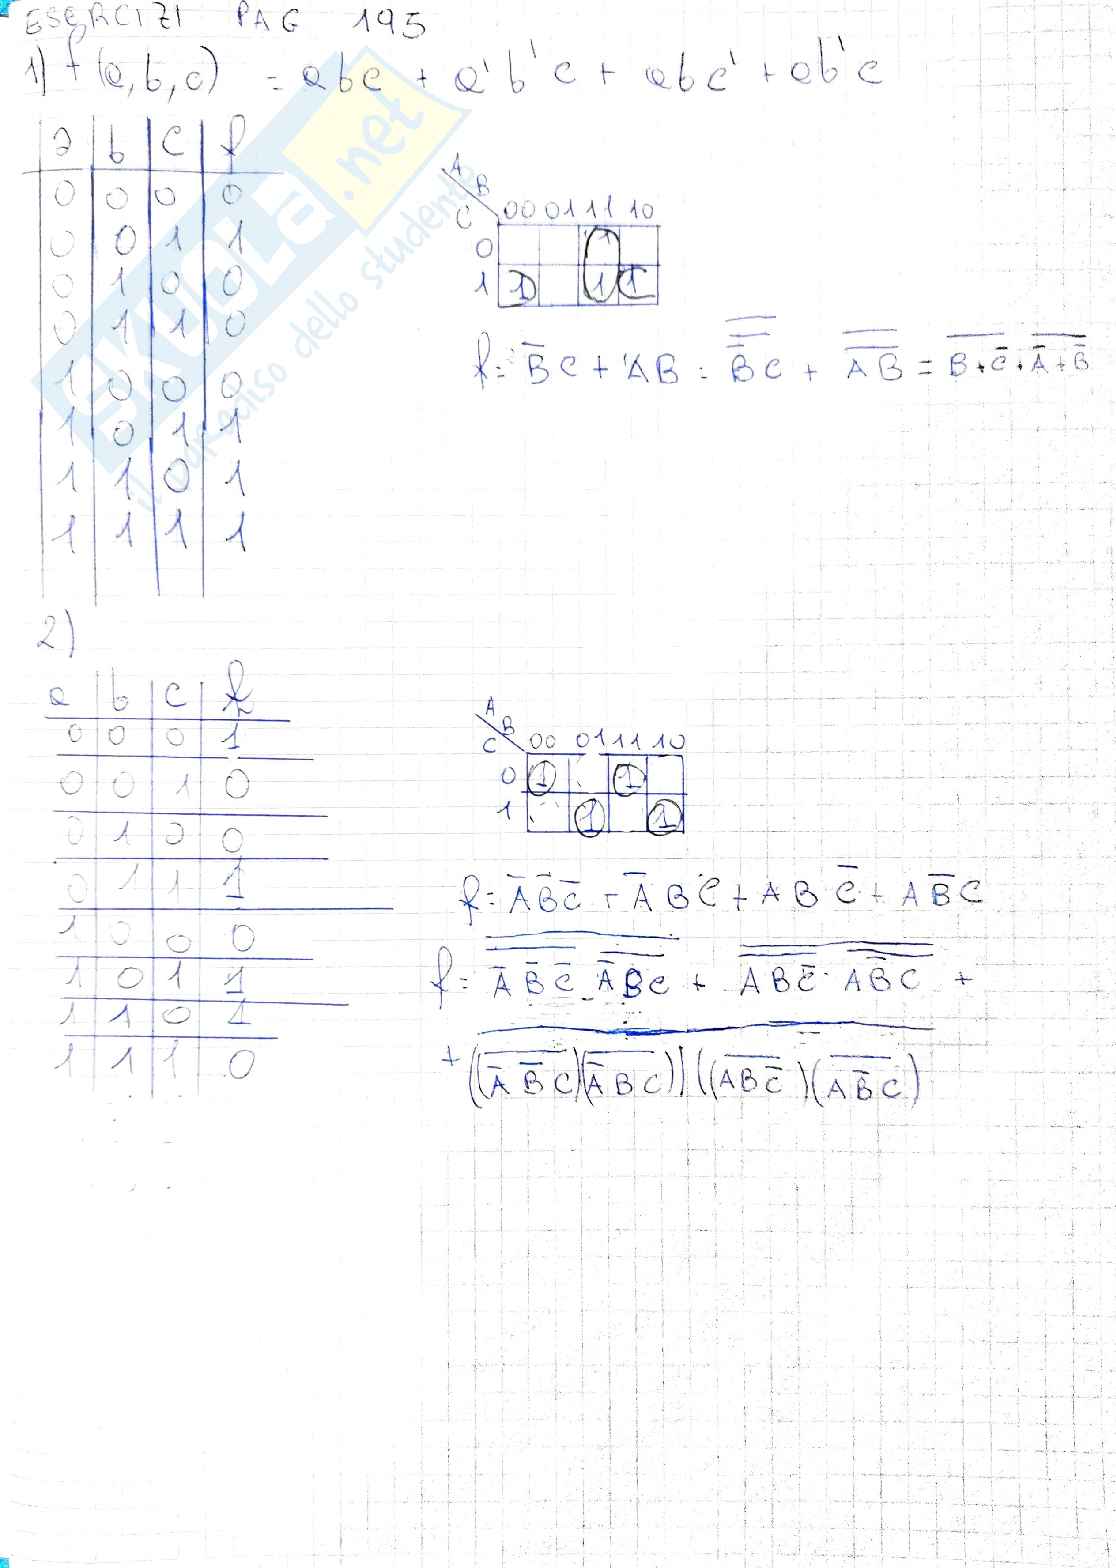 ESERCIZI PAG 195
1) f(a,b,c) = abc + a'b'c + abc' + ab'c
a b c f
0 0 0 0
0 0 1 1
0 1 0 0
0 1 1 0
1 0 0 0
1 0 1 1
1 1 0 1
1 1 1 1
A B
C 00 01 11 10
0 1
1 1 1 1
f = B̅C + AB = B̿̅C̿ + A̿B̿ = \overline{B+C̅} + \overline{A̅+B̅}
2)
a b c f
0 0 0 1
0 0 1 0
0 1 0 0
0 1 1 1
1 0 0 0
1 0 1 1
1 1 0 1
1 1 1 0
A B
C 00 01 11 10
0 1 1
1 1 1
f = A̅B̅C̅ + A̅BC + ABC̅ + AB̅C
SKUOLA.net